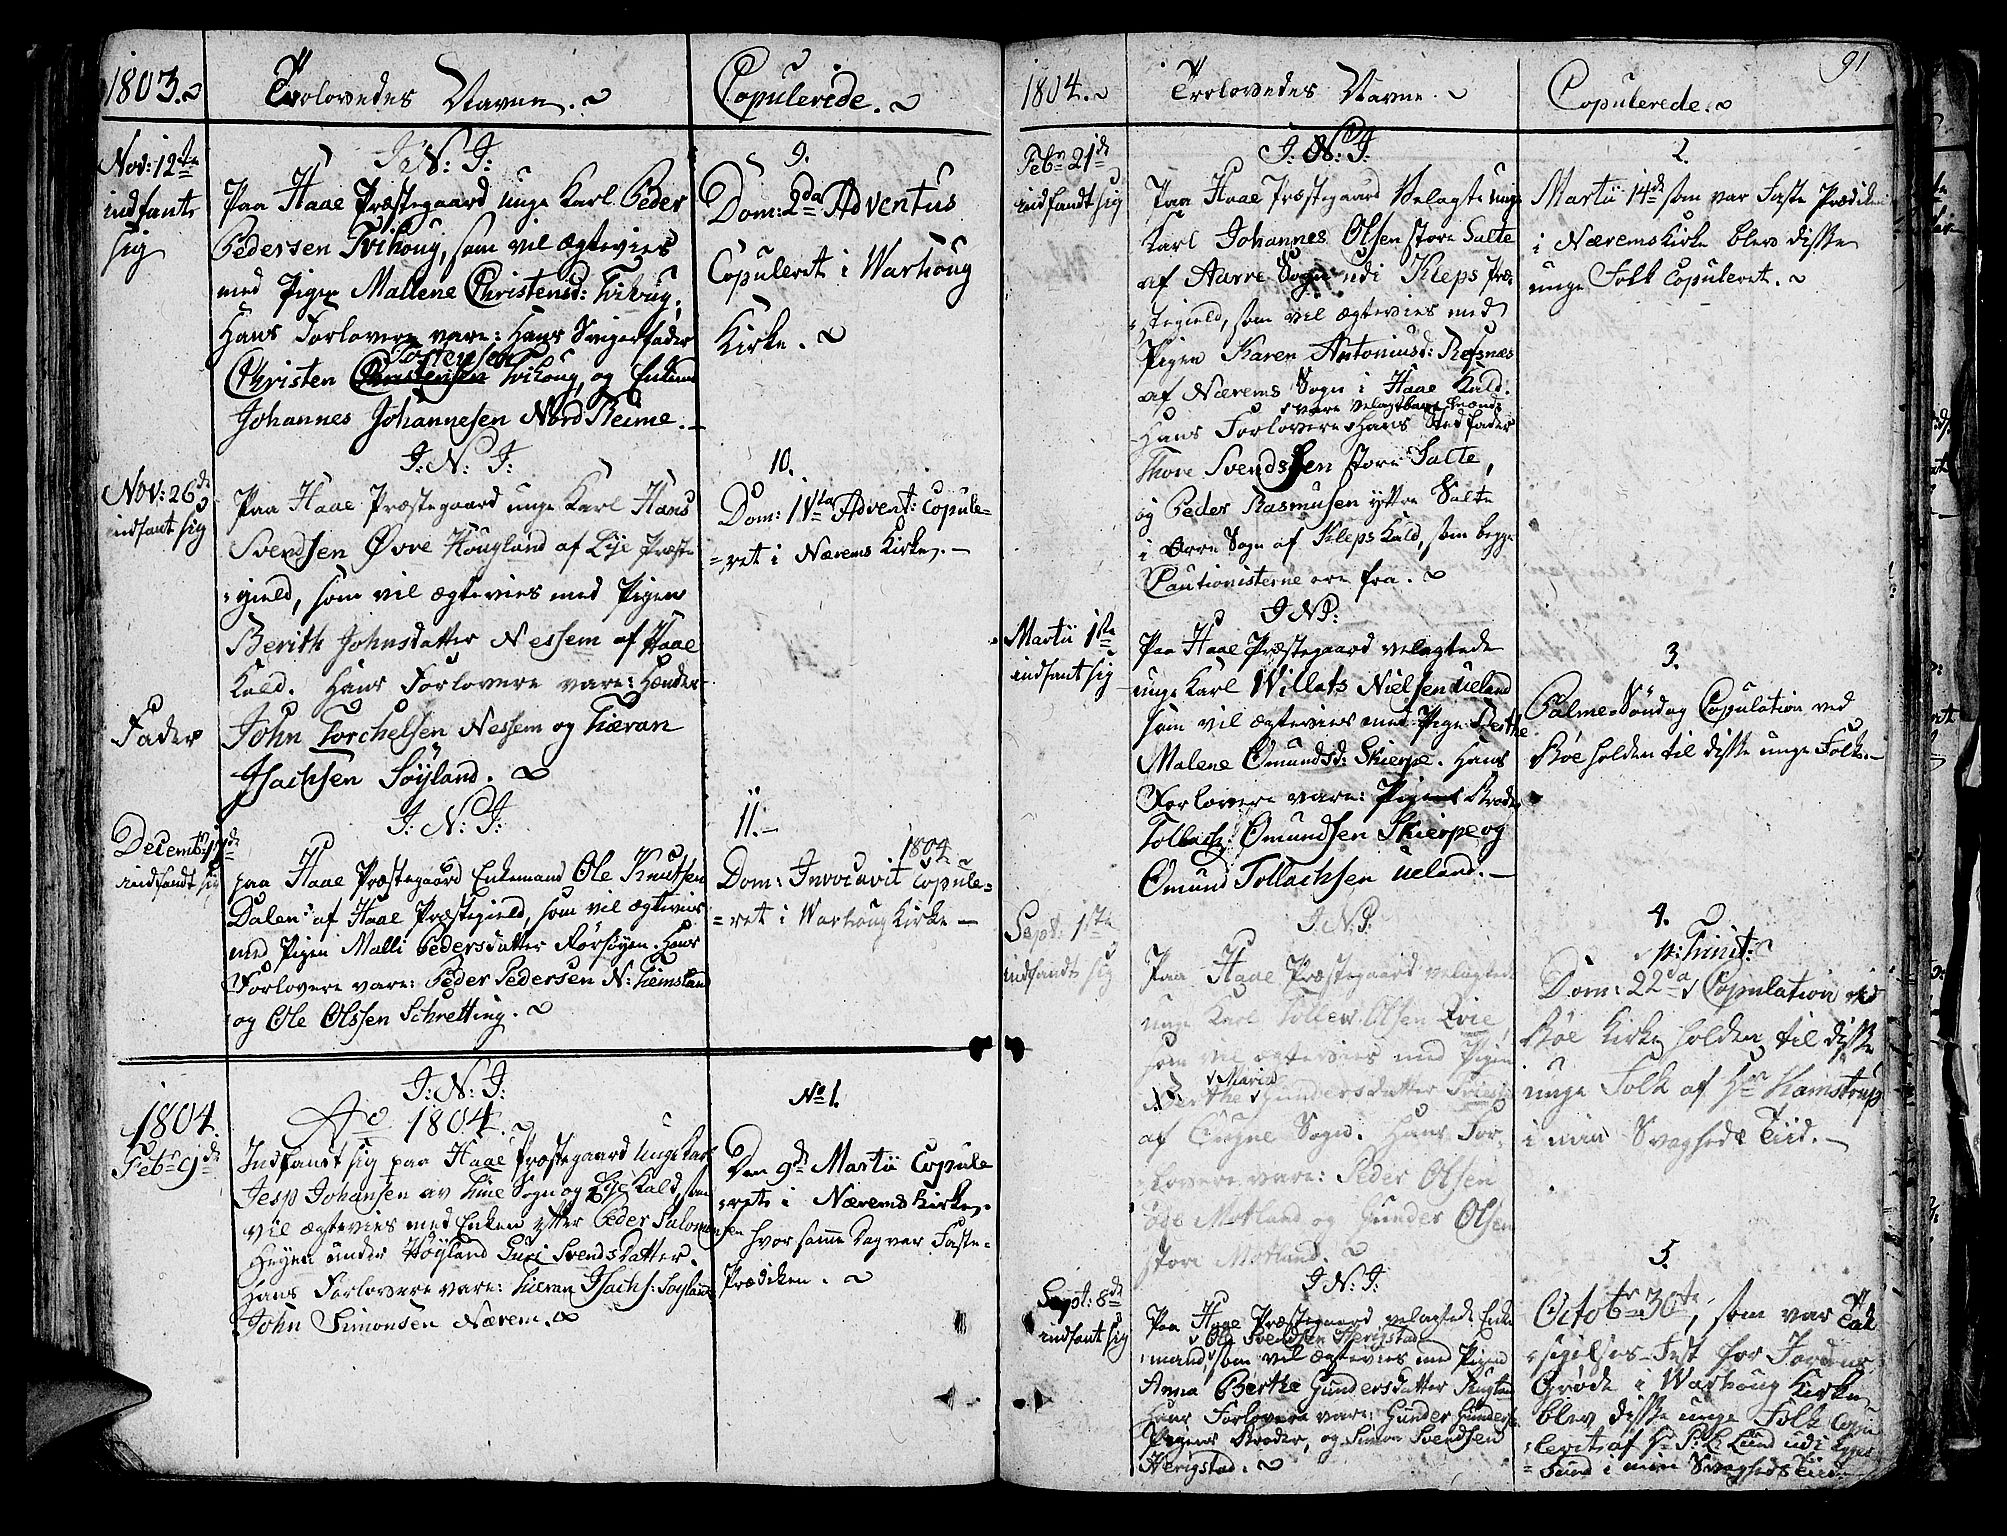 1803.
Trolovedes Navne.
Copulerede.
Nov: 12te
indfant
sig
J: N: J:
Paa Haae Præstegaard unge Karl Peder
Pedersen Tvihoug, som vil ægtevies
med Pigen Mallene Christensd: Tvihoug,
Hans Forlovere vare: Hans Svigerfader
Torsensen
Christen Christensen Tvihoug, og
Johannes Johannesen Nord Reime.
9.
Dom: 2da Adventus
Copuleret i Warhoug
Kirke.
Nov: 26de
indfant sig
J: N: J:
Paa Haae Præstegaard unge Karl Hans
Svendsen Øvre Hougland af Lye Præste
gield, som vil ægtevies med Pigen
Berith Johnsdatter Nessem af Haae
Kald. Hans Forlovere vare: Hendes
Fader
John Torchelsen Nessem og Tieran
Isachsen Søyland.
10.
Dom: IVta Advent: Copule-
=ret i Nærems Kirke.
Decembr:
indfandt sig
J: N: J:
paa Haae Præstegaard Enkemand Ole Knutsen
Dalen af Haae Præstegield, som vil ægtevies
med Pigen Malli Pedersdatter Rørsøyen. Hans
Forlovere vare: Peder Pedersen N: Kiemsland
og Ole Olssen Schretting.
11.
1804
Dom: Invocavit Copule-
=ret i Warhoug Kirke
1804.
Febr 9de
J: N: J:
Ao 1804.
Indfandt sig paa Haae Præstegaard Unge Karl
Jesp Johansen av Time Sogn og Lye Kald, som
vil ægtevies med Enken efter Peder Salomon
sen
Høyen under Høyland Guri Svendsdatter.
Hans Forlovere vare: Tieran Isachs: Søyland
John Simonsen Nærem.
No 1.
Den 9de Martii Copule
ret i Nærems Kirke,
hvor samme Dag var Faste-
Prædiken.
1804.
Trolovedes Navne.
Copulerede.
91
Febr 21de
indfandt sig
J: N: J:
Paa Haae Præstegaard Velagte unge
Karl Johannes Olsen store Salte
af Aarre Sogn udi Kleps Præ-
stegield, som vil ægtevies med
Pigen Karen Antoniusd: Refsnæs
af Nærems Sogn i Haae Kald.
vare velagtbare Mænd
Hans Forlovere Hans Stedfader
Thore Svendsen store Salte,
og Peder Rasmusen yttre Salte
i Orre Sogn af Kleps Kald, som begge
Cautionisterne ere fra.
2.
Martii 14de som var Faste Prædiken
i Nærems Kirke blev disse
unge Folk Copuleret.
Martii 1ste
indfant sig
J: N: J:
Paa Haae Præstegaard velagtede
unge Karl Willats Nielsen Ueland
som vil ægtevies med Pige Berthe
Malene Omundsd: Skierpe. Hans
Forlovere vare: Pigens Broder
Tollach: Omundsen Skierpe og
Omund Tollachsen Ueland.
3.
Palme Søndag Copulation ved
Bøe holden til disse unge Folk.
Sept: 1ste
indfandt sig
J: N: J:
Paa Haae Præstegaard velagtede
unge Karl Tollev Olsen
som vil ægtevies med Pigen
Maria
Berthe Gundersdatter
af Ougne Sogn. Hans For-
lovere vare: Peder Olsen
øde Motland og Gunder Olsen
store Motland.
4.
p: Trinit:
Dom: 22da Copulation ved
Bøe Kirke holden til disse
unge Folk af Hr Hamstrup
i min Svagheds Tiid.
Sept: 8de
indfant sig
J: N: J:
Paa Haae Præstegaard velagtede Enke
Ole Svendsen Herigstad
mand, som vil ægtevies med Pigen
Anna Berthe Gundersdatter
Hans Forlovere vare: Gunder Gunders:
Pigens Broder, og Simon Svendsen
Herigstad.
5.
Octobr 30te, som var Tak
sigelses-Fest for Jordens
Grøde i Warhoug Kirke
blev disse unge Folk Copu
leret af Hr P: L: Lund udi Eger-
sund i min Svagheds Tiid.